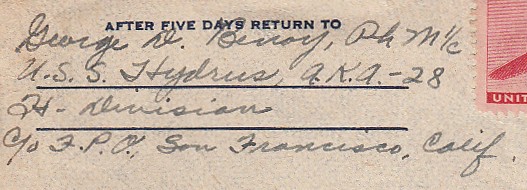 AFTER FIVE DAYS RETURN TO
George D. Benoy, Ph M 1/c
U.S.S. Hydrus, A.K.A.-28
H- Division
C/o F.P.O., San Francisco, Calif.
UNIT